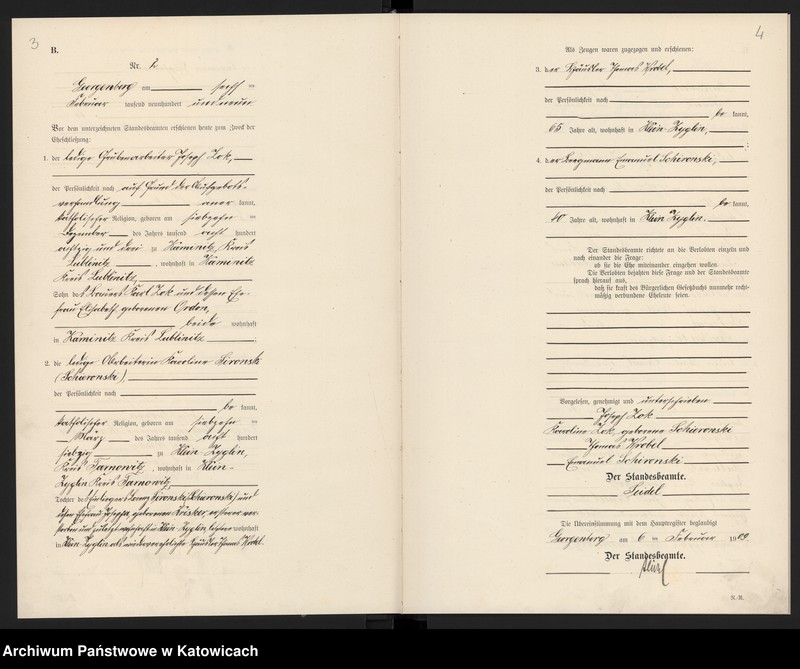 3
B.
Nr. 2
Georgenberg am sechs ten
Februar tausend neunhundert und neun
Vor dem unterzeichneten Standesbeamten erschienen heute zum Zweck der
Eheschließung:
1. der ledige Grubenarbeiter Joseph Zok,
der Persönlichkeit nach auf Grund der Aufgebots-
verhandlung aner kannt,
katholischer Religion, geboren am siebzehn ten
Dezember des Jahres tausend acht hundert
achtzig und drei zu Kaminitz Kreis
Lublinitz, wohnhaft in Kaminitz
Kreis Lublinitz,
Sohn des Bauers Karl Zok und dessen Ehe-
frau Elisabeth geborenen Ordon,
beide wohnhaft
in Kaminitz Kreis Lublinitz;
2. die ledige Arbeiterin Karoline Sironski
(Schieronski),
der Persönlichkeit nach
be kannt,
katholischer Religion, geboren am siebzehn ten
März des Jahres tausend acht hundert
siebzig zu Klein Zyglin,
Kreis Tarnowitz, wohnhaft in Klein-
Zyglin Kreis Tarnowitz,
Tochter des Sironski (Schieronski) und
dessen Ehefrau Josepha, geborenen, ersterer ver-
storben und zuletzt wohnhaft in Klein Zyglin, letztere wohnhaft
in Klein-Zyglin als wiederverehelichte Häusler Thomas Wrobel.
4
Als Zeugen waren zugezogen und erschienen:
3. der Häusler Thomas Wrobel,
der Persönlichkeit nach
be kannt,
65 Jahre alt, wohnhaft in Klein-Zyglin,
4. der Bergmann Emanuel Schironski,
der Persönlichkeit nach
be kannt,
40 Jahre alt, wohnhaft in Klein Zyglin.
Der Standesbeamte richtete an die Verlobten einzeln und
nach einander die Frage:
ob sie die Ehe miteinander eingehen wollen.
Die Verlobten bejahten diese Frage und der Standesbeamte
sprach hierauf aus,
daß sie kraft des Bürgerlichen Gesetzbuchs nunmehr recht-
mäßig verbundene Eheleute seien.
Vorgelesen, genehmigt und unterschrieben
Joseph Zok
Karoline Zok, geborene Schieronski
Thomas Wrobel
Emanuel Schironski
Der Standesbeamte.
Seidel.
Die Übereinstimmung mit dem Hauptregister beglaubigt
Georgenberg am 6 ten Februar 1909
Der Standesbeamte.
R.-R.
Archiwum Państwowe w Katowicach